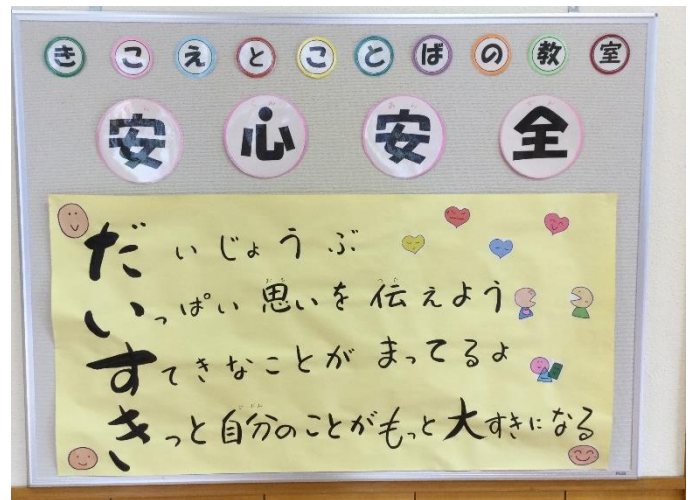 きこえとことばの教室
安心安全
だいじょうぶ
いっぱい思いを伝えよう
すてきなことがまってるよ
きっと自分のことがもっと大すきになる